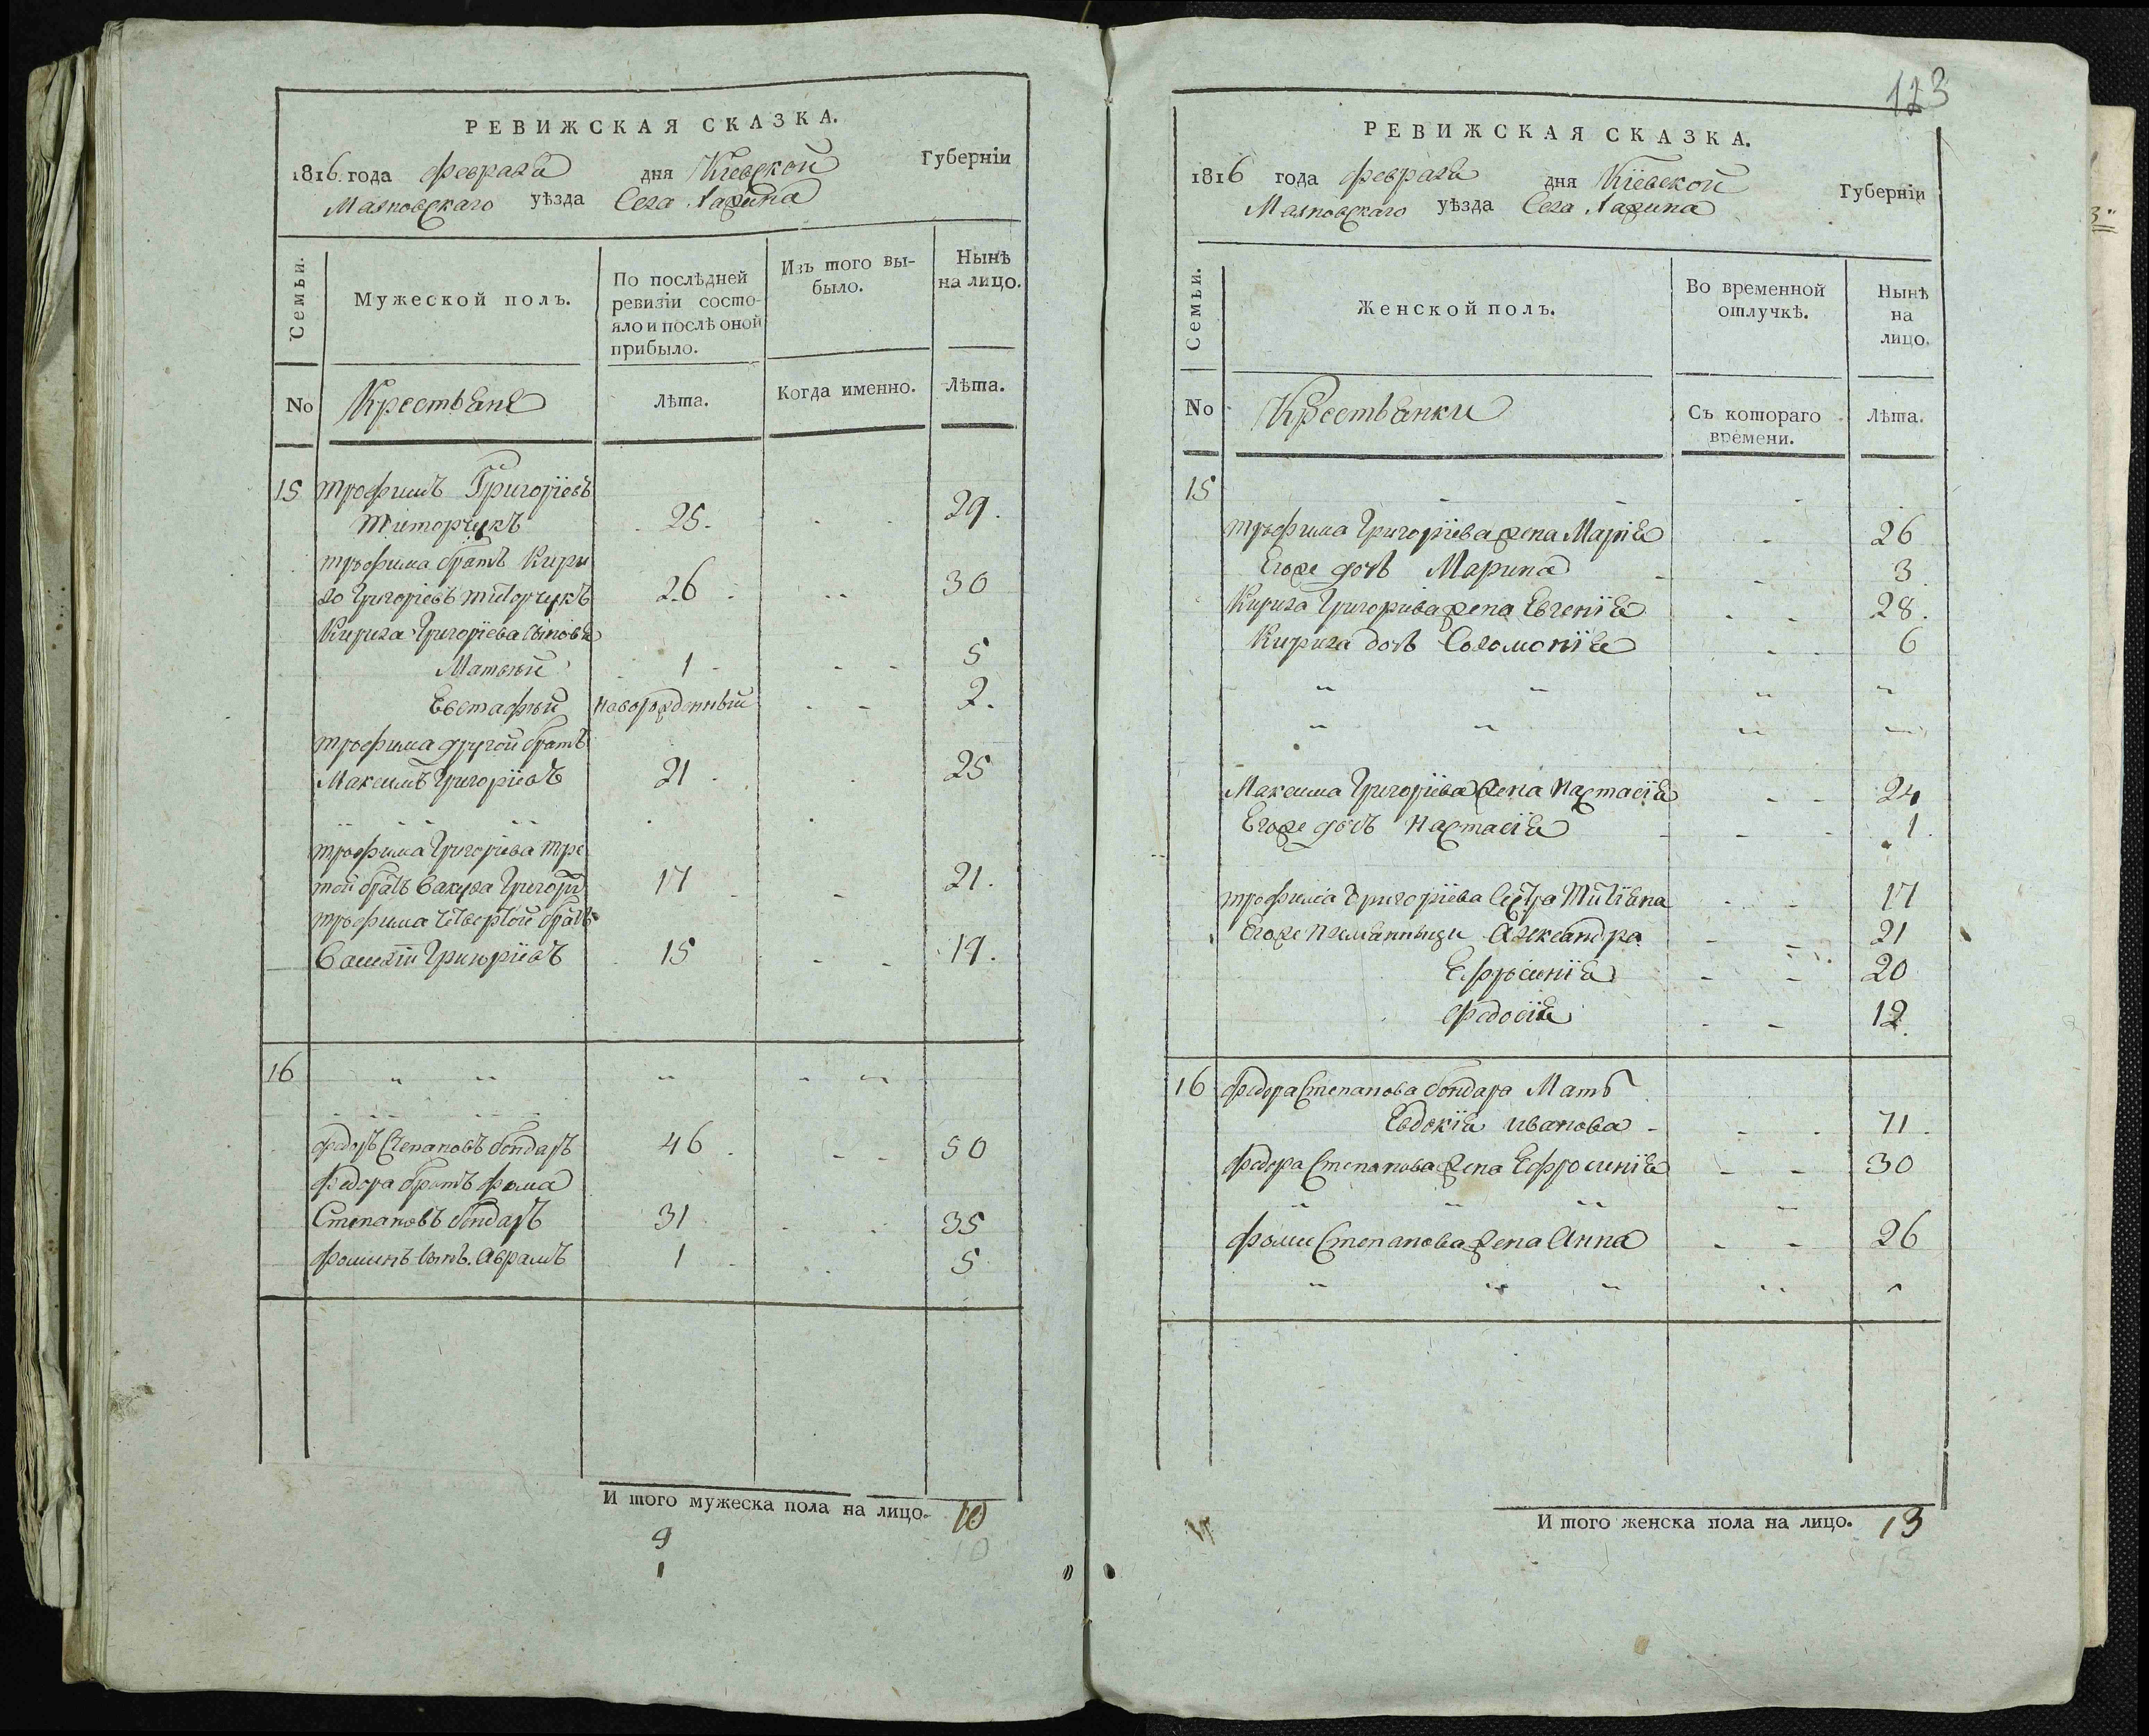 РЕВИЖСКАЯ СКАЗКА.
1816 года февраля дня Кіевской Губерніи
уѣзда Села
Семьи.
Мужеской полъ.
По послѣдней
ревизіи состо-
яло и послѣ оной
прибыло.
Изъ того вы-
было.
Нынѣ
на лицо.
No Крестьяне Лѣта. Когда именно. Лѣта.
15 Трофимъ Григоріевъ
Титорчукъ 25. 29.
Трофима братъ Кири
ло Григоріевъ Титорчукъ 26 30
Кирила Григоріева сыновья
Матвѣй 1 5
Евстафѣй новорожденный 2.
Трофима другой братъ
Максимъ Григоріевъ 21 25
Трофима Григоріева тре
той братъ Вакула Григорі 17 21.
Трофима четвертой братъ
Василій Григоріевъ 15 19.
16
Федоръ Степановъ бондаръ 46 50
Федора братъ Фома
Степановъ бондаръ 31 35
Фоминъ сынъ Аврамъ 1 5
И того мужеска пола на лицо. 10
9
1
10
123
РЕВИЖСКАЯ СКАЗКА.
1816 года февраля дня Кіевской Губерніи
уѣзда Села
Семьи.
Женской полъ.
Во временной
отлучкѣ.
Нынѣ
на
лицо.
No Крестьянки Съ котораго
времени. Лѣта.
15
Трофима Григоріева жена Марія 26
Егоже дочь Марина 3
Кирила Григоріева жена Евгенія 28.
Кирила дочь Соломонія 6
Максима Григоріева жена Настасія 24
Егоже дочь Настасія 1
Трофима Григоріева сестра Титіяна 17
Егоже племянницы Александра 21
Ефросинія 20
Федосія 12
16 Федора Степанова бондара Мать
Евдокія Иванова 71
Федора Степанова жена Ефросинія 30
Фомы Степанова жена Анна 26
И того женска пола на лицо. 13
13